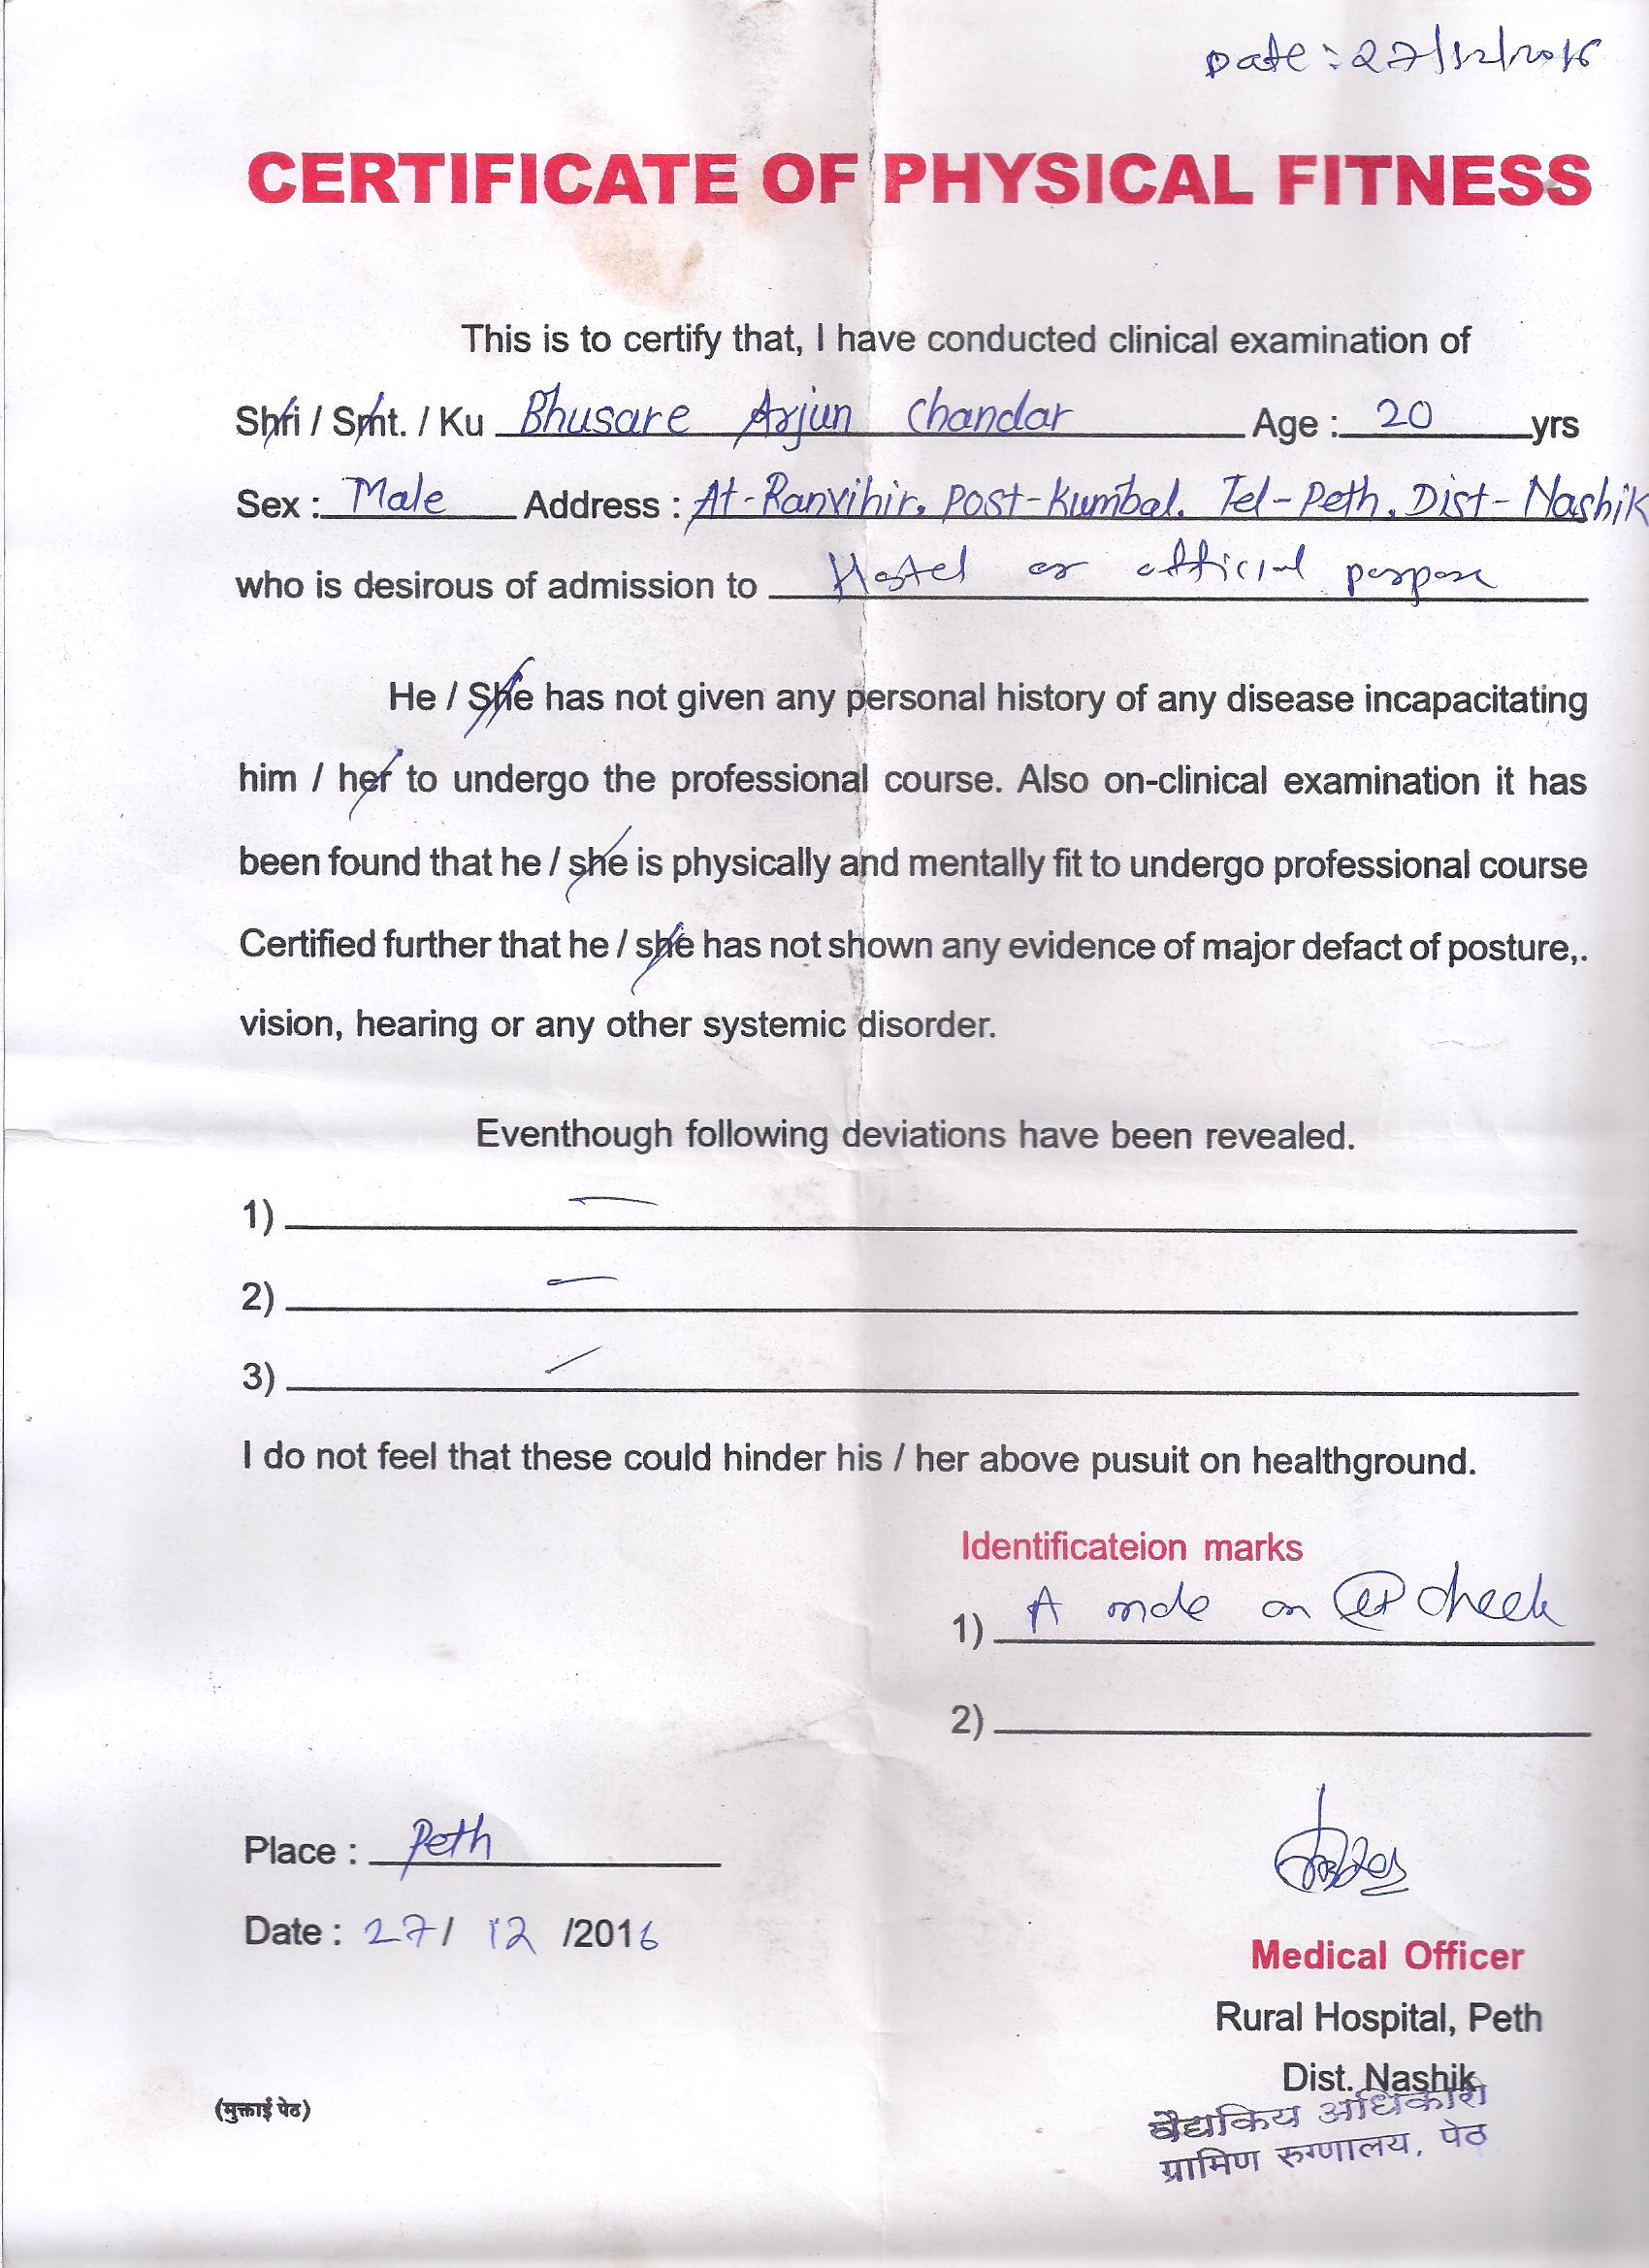 Date : 27/12/2016
CERTIFICATE OF PHYSICAL FITNESS
This is to certify that, I have conducted clinical examination of
Shri / Smt. / Ku Bhusare Arjun Chandar Age : 20 yrs
Sex : Male Address : At-Ranvihir, Post-Kumbal. Tel-Peth, Dist-Nashik
who is desirous of admission to Hostel or official
He / She has not given any personal history of any disease incapacitating
him / her to undergo the professional course. Also on-clinical examination it has
been found that he / she is physically and mentally fit to undergo professional course
Certified further that he / she has not shown any evidence of major defact of posture,.
vision, hearing or any other systemic disorder.
Eventhough following deviations have been revealed.
1) —
2) —
3) —
I do not feel that these could hinder his / her above pusuit on healthground.
Identificateion marks
1) A mole on cheek
2)
Place : Peth
Date : 27/ 12 /2016
Medical Officer
Rural Hospital, Peth
Dist. Nashik
वैद्यकिय अधिकारी
ग्रामिण रुग्णालय, पेठ
(मुक्ताई पेठ)